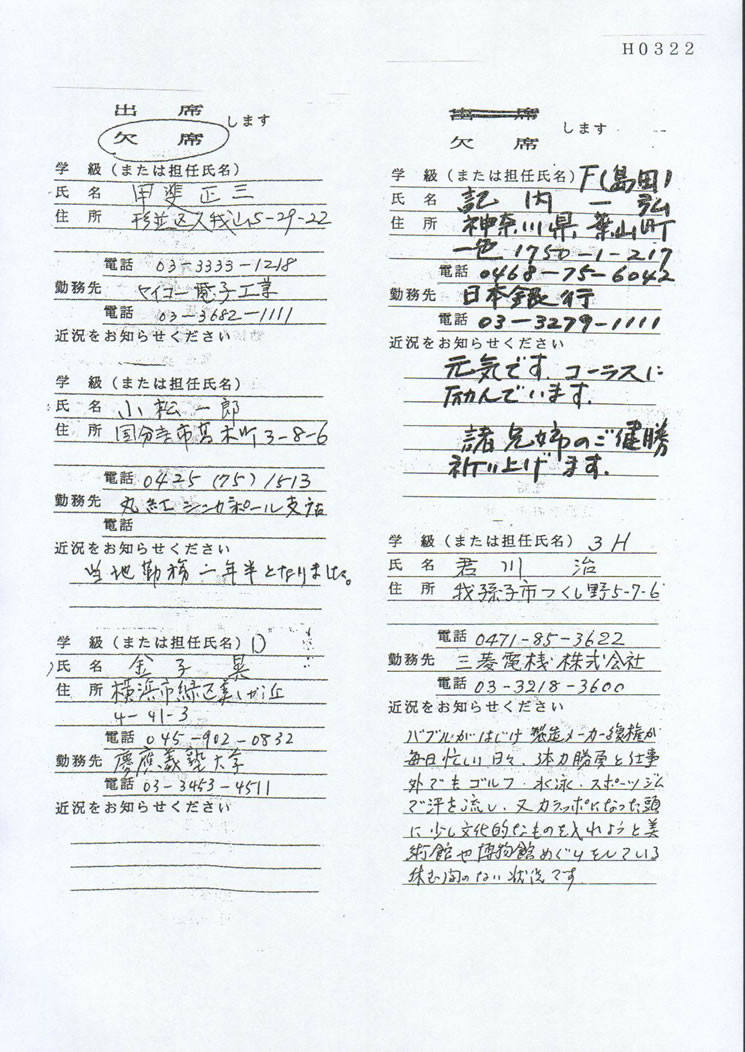 H0322
出席
欠席
します
学級(または担任氏名)
氏名 甲斐正三
住所 杉並区久我山5-29-22
電話 03-3333-1218
勤務先 セイコー電子工業
電話 03-3682-1111
近況をお知らせください
学級(または担任氏名)
氏名 小松一郎
住所 国分寺市高木町3-8-6
電話 0425(75)1513
勤務先 丸紅シンガポール支店
電話
近況をお知らせください
当地勤務二年半となりました。
学級(または担任氏名) D
氏名 金子晃
住所 横浜市緑区美しが丘
4-41-3
電話 045-902-0832
勤務先 慶應義塾大学
電話 03-3453-4511
近況をお知らせください
出席
欠席
します
学級(または担任氏名) F(島田)
氏名 記内一弘
住所 神奈川県葉山町
一色1750-1-217
電話 0468-75-6042
勤務先 日本銀行
電話 03-3279-1111
近況をお知らせください
元気です。コーラスに
励んでいます。
諸兄姉のご健勝
祈り上げます。
学級(または担任氏名) 3H
氏名 君川治
住所 我孫子市つくし野5-7-6
電話 0471-85-3622
勤務先 三菱電機株式会社
電話 03-3218-3600
近況をお知らせください
バブルがはじけ製造メーカー復権が
毎日忙しい日々、体力勝負と仕事
外でもゴルフ・水泳・スポーツジム
で汗を流し、又カラッポになった頭
に少し文化的なものを入れようと美
術館や博物館めぐりをしている
休む間のない状況です